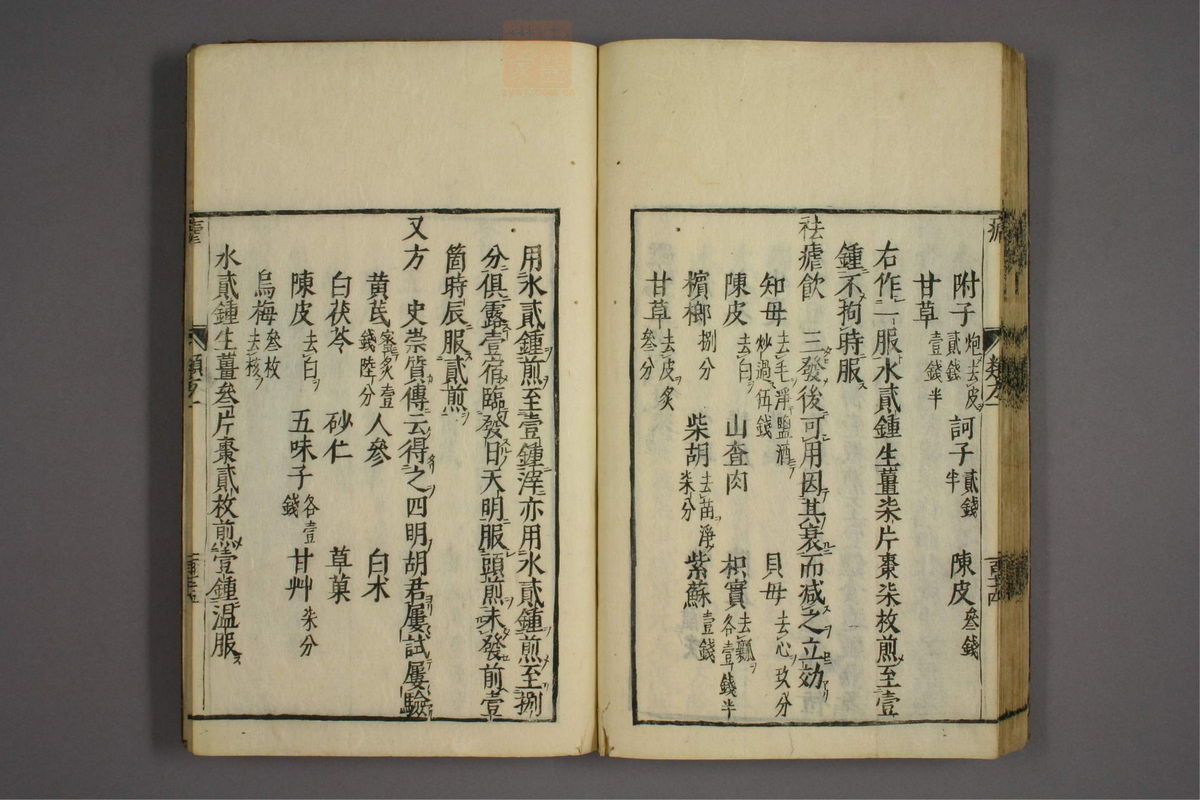 附子炮去皮貳錢 訶子貳錢半 陳皮叄錢
甘草壹錢半
右作二服水貳鍾生薑柒片棗柒枚煎至壹
鍾不拘時服
祛瘧飲 三發後可用因其衰而減之立効
知母去毛淨鹽酒炒過伍錢 貝母去心玖分
陳皮去白 山查肉 枳實去瓤各壹錢半
檳榔捌分 柴胡去苗淨柒分 紫蘇壹錢
甘草去皮炙叄分
用水貳鍾煎至壹鍾滓亦用水貳鍾煎至捌
分俱露壹宿臨發日天明服頭煎未發前壹
箇時辰服貳煎
又方 史崇質傳云得之四明胡君屢試屢驗
黄芪蜜炙壹錢陸分 人參 白术
白茯苓 砂仁 草菓
陳皮去白 五味子各壹錢 甘艸柒分
烏梅叄枚去核
水貳鍾生薑叄片棗貳枚煎壹鍾温服